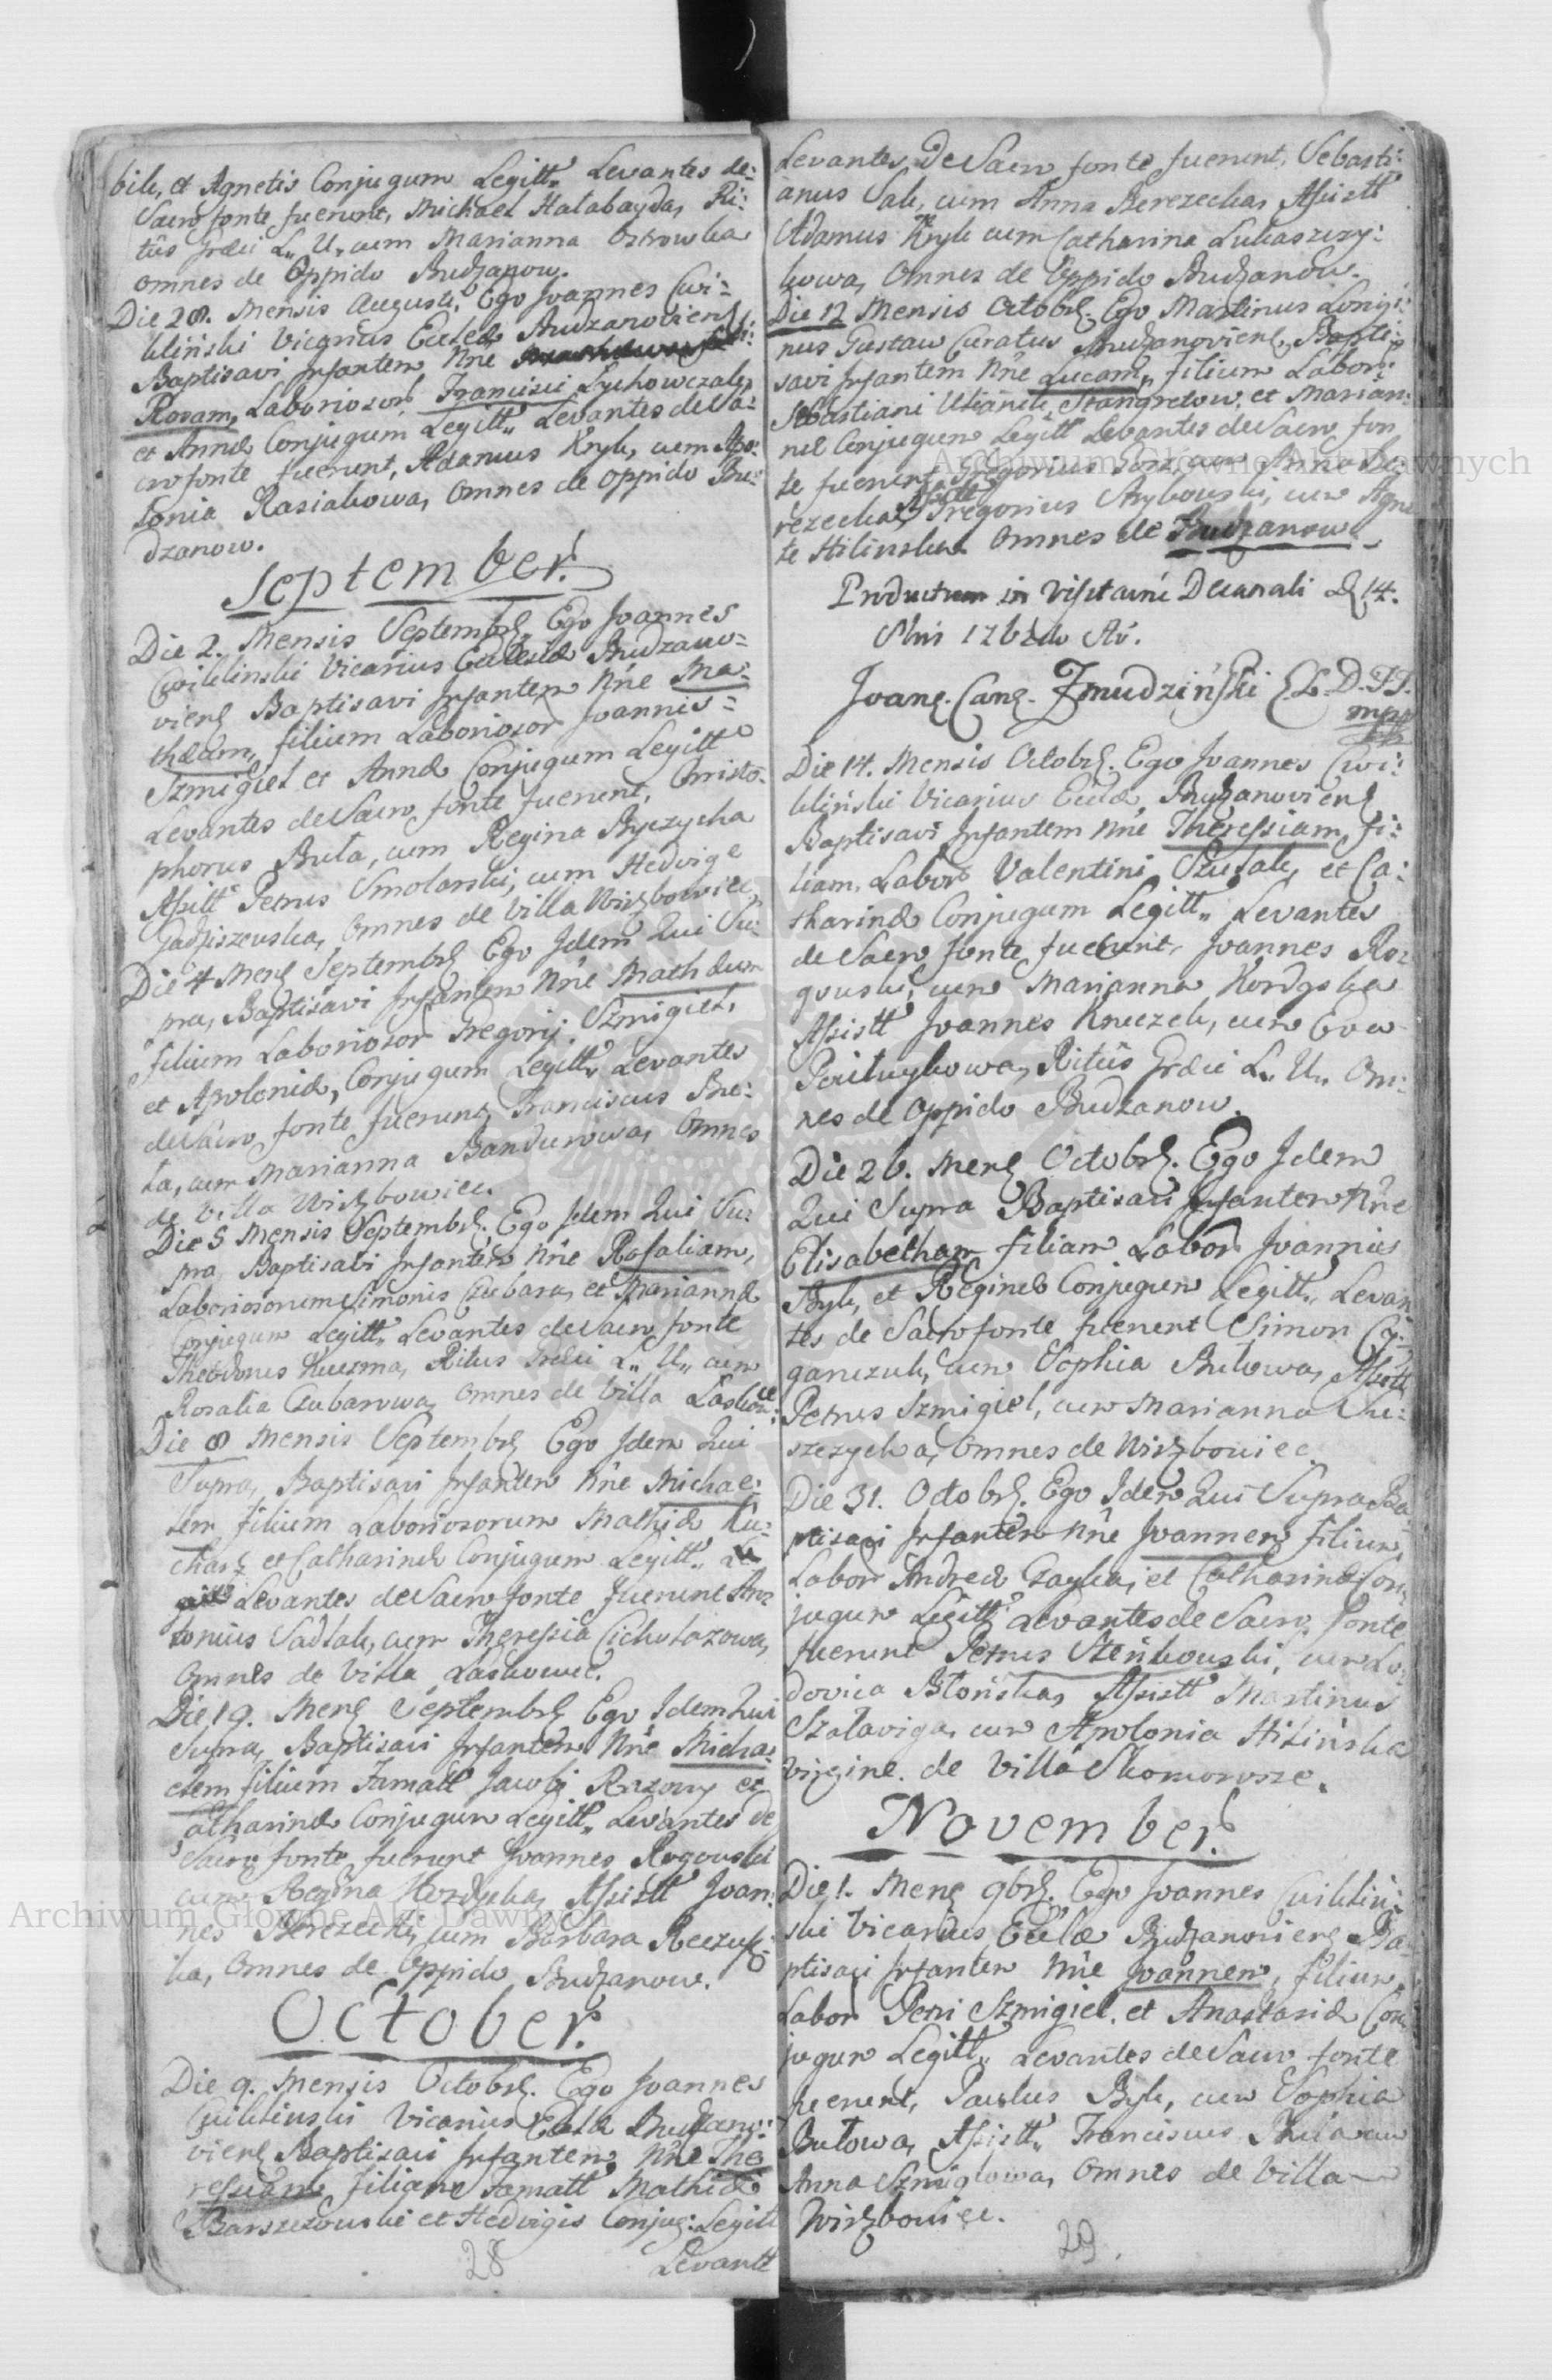 bik, et Agnetis Conjugum Legitt„ Levantes de:
Sacro fonte fuerunt, Michael Hatabayda, Ri:
tûs Græci L„ U„ cum Marianna Ostrowska
omnes de Oppido Budzanow.
Die 28. Mensis Augusti, Ego Joannes Cwi:
kliński Vicarius Ecclæ Budzanoviens
Baptisavi Infantem Nn͂e
Rosam, Laboriosor Francisci Lychowczak,
et Annæ Conjugum Legitt„ Levantes de Sa:
cro fonte fuerunt, Adamus Kryk, cum Apo:
lonia Kasiakowa, Omnes de Oppido Bu:
dzanow.
September.
Die 2. Mensis Septembr. Ego Joannes
Cwikliński Vicarius Ecclesiæ Budzano:
viens Baptisavi Infantem Nn͂e Ma:
thæum, filium Laboriosor Joannis
Szmigiel et Annæ Conjugum Legitt
Levantes de Sacro fonte fuerunt, Christo:
phorus Buta, cum Regina Byczycha
Assistt Petrus Smolarski, cum Hedvige
Gadziszewska, Omnes de Villa Wirzbowiec
Die 4 Mens Septembr Ego Idem Qui Su:
pra, Baptisavi Infantem Nn͂e Mathæum
filium Laboriosor Gregorij Szmigiel,
et Apoloniæ, Conjugum Legitt„ Levantes
de Sacro fonte fuerunt, Franciscus Bu:
ta, cum Marianna Bandurowa, Omnes
de Villa Wirzbowiec.
Die 5 Mensis Septembr. Ego Idem Qui Su:
pra, Baptisavi Infantem Nn͂e Rosaliam,
Laboriosorum Simonis Czubara, et Mariannæ
Conjugum Legitt„ Levantes de Sacro fonte
Theodorus Kuzma, Ritus Græci L„ U„ cum
Rosalia Czubarowa, Omnes de Villa Laskowce
Die 8 Mensis Septembr Ego Idem Qui
Supra, Baptisavi Infantem Nn͂e Michae:
lem filium Laboriosorum Mathiæ Ku:
charz et Catharinæ Conjugum Legitt„
Levantes de Sacro fonte fuerunt An:
tonius Sadlak, cum Theressia Cichutazowa,
Omnes de Villa Laskowce.
Die 19. Mens Septembr Ego Idem Qui
Supra, Baptisavi Infantem Nn͂e Micha:
elem filium Famatt Jacobi et
Catharinæ Conjugum Legitt„ Levantes de
Sacro fonte fuerunt Joannes Rogouski
cum Regina Kordyska, Assistt Joan:
nes Berezecki, cum Barbara
ka, Omnes de Oppido Budzanow.
October.
Die 9. Mensis Octobr. Ego Joannes
Cwikliński Vicarius Eccłæ Budzano:
viens Baptisavi Infantem Nn͂e The
ressiam filiam Famatt Mathiæ
Barszczowski et Hedvigis Conjug: Legitt
Levantt
28
Levantes de Sacro fonte fuerunt, Sebasti:
anus Sak, cum Anna Berezecka, Assistt
Adamus Kryk cum Catharina Lukaszczy:
kowa, Omnes de Oppido Budzanow.
Die 12 Mensis Octobr. Ego Martinus Longi:
nus Gustaw Curatus Budzanoviens, Bapti:
savi Infantem Nn͂e Lucam„ filium Labor:
Sebastiani Stangretow, et Marian:
næ Conjugum Legitt Levantes de Sacro fon
te fuerunt Gregorius cum Anna Be:
rezecka, Assistt Gregorius Grzybowski, cum Agne
te Hilinska Omnes de Budzanow
Productum in Visitatn͂e Decanali D 14.
8bris
Joan. Can. Zmudziński D.
mpp
Die 14. Mensis Octobr. Ego Joannes Cwi:
kliński Vicarius Eccłæ Budzanoviens
Baptisavi Infantem Nn͂e Theressiam, fi:
liam, Labor Valentini Szusak, et Ca:
tharinæ Conjugum Legitt„ Levantes
de Sacro fonte fuerunt, Joannes Ro:
gouski, cum Marianna Kordyska
Assistt Joannes Kruczek, cum Eva
Ritûs Græci L„ U„ Om:
nes de Oppido Budzanow.
Die 26. Mens Octobr. Ego Idem
Qui Supra Baptisavi Infantem Nn͂e
Elisabetham filiam Labor Joannis
Byk, et Reginæ Conjugum Legitt„ Levan
tes de Sacro fonte fuerunt Simon Cy:
ganczuk, cum Sophia Butowa, Assistt
Petrus Szmigiel, cum Marianna Su:
szczycha, Omnes de Wirzbowiec.
Die 31. Octobr. Ego Idem Qui Supra Ba
ptisavi Infantem Nn͂e Joannem filium,
Labor Andreæ Czayka, et Catharinæ Con
jugum Legitt Levantes de Sacro fonte
fuerunt Petrus Steńkouski, cum Lu:
dovica Błońska, Assistt Martinus
Szałaviga, cum Apolonia Hilińska
Virgine. de Villa Skomorosze.
November.
Die 1. Mens 9br. Ego Joannes Cwikliń:
ski Vicarius Eccłæ Budzanoviens Ba
ptisavi Infantem Nn͂e Joannem, filium
Labor Petri Szmigiel, et Anastasiæ Con
jugum Legitt„ Levantes de Sacro fonte
fuerunt, Paulus Byk, cum Sophia
Butowa, Assistt„ Franciscus Buta cum
Anna Szmiglowa, Omnes de Villa
Wirzbowiec.
29.
Archiwum Główne Akt Dawnych
Archiwum Główne Akt Dawnych